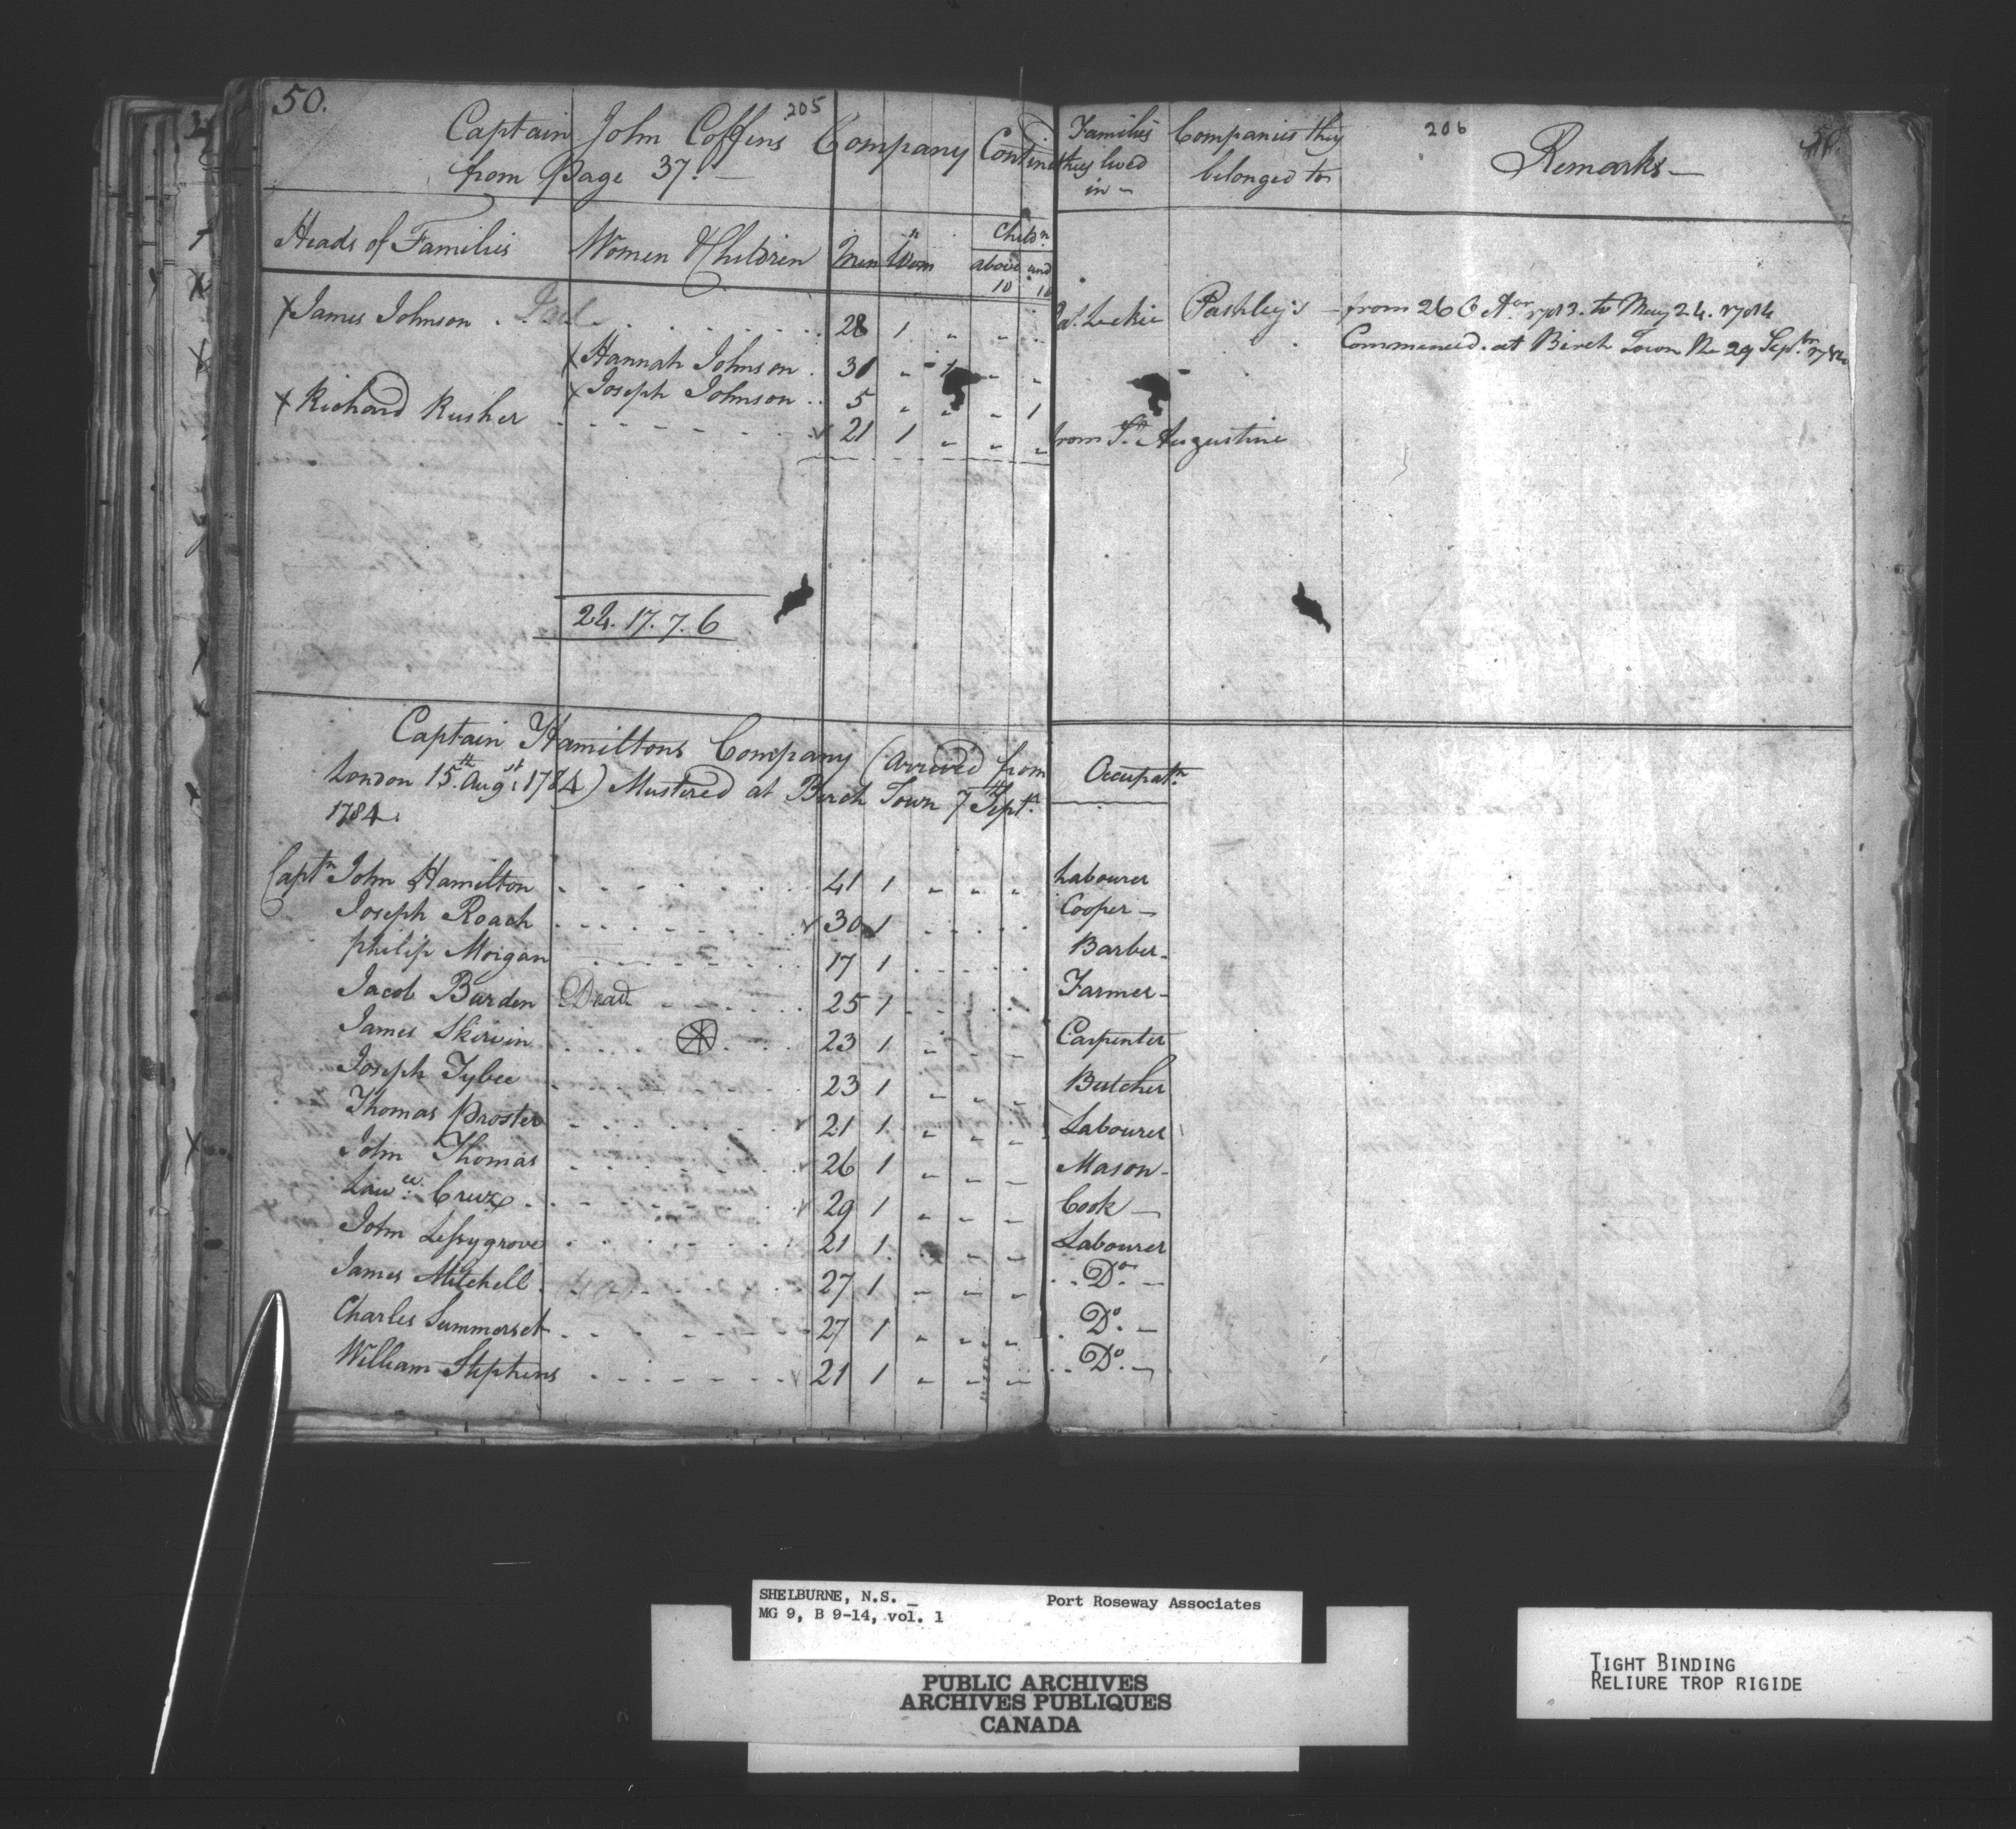 50.
205
Captain John Coffins Company Contin
from Page 37.
Heads of Families Women & Children Men Wom.n Child.n above 10 und 10
X James Johnson . . . . . . 28 1 " " "
X Hannah Johnson . 30 " 1 " "
X Joseph Johnson . . 5 " " " 1
X Richard Rusher - - - - - - 21 1 " " "
24. 17. 7. 6
Captain Hamiltons Company (arrived from
London 15th Augst 1784) Mustered at Birch Town 7th Septr
1784.
Captn John Hamilton - - - - - - 41 1 " " "
Joseph Roach - - - - - - 30 1
Philip Morgan - - - - - - 17 1
Jacob Burden Dead - - - - 25 1
James Skirvin . . . . 23 1 " " "
Joseph Tybee - - - - - - 23 1 " " "
Thomas Proster - - - - - - 21 1 " " "
John Thomas - - - - - - 26 1 " " "
Lawce Cruze - - - - - - 29 1 " " "
John Lessygrove . . . . . . 21 1 " " "
James Mitchell 27 1 " " "
Charles Summerset - - - - - - 27 1 " " "
William Stephens - - - - - - 21 1 " " "
206
50.
Families they lived in - Companies they belonged to Remarks
Leckie Pashley's - from 26 Octor 1783. to May 24. 1784
Commenced at Birch Town the 29 Septr 1784
from St Augustine
Occupatn
Labourer
Cooper -
Barber -
Farmer -
Carpenter
Butcher
Labourer
Mason -
Cook -
Labourer
Do -
Do -
Do -
SHELBURNE, N.S. _ Port Roseway Associates
MG 9, B 9-14, vol. 1
PUBLIC ARCHIVES
ARCHIVES PUBLIQUES
CANADA
TIGHT BINDING
RELIURE TROP RIGIDE